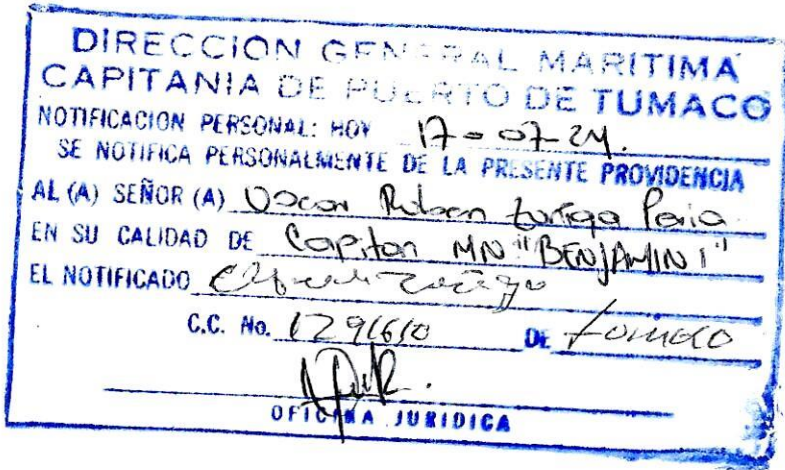 DIRECCION GENERAL MARITIMA
CAPITANIA DE PUERTO DE TUMACO
NOTIFICACION PERSONAL: HOY 17-07-24.
SE NOTIFICA PERSONALMENTE DE LA PRESENTE PROVIDENCIA
AL (A) SEÑOR (A) Oscar Ruben
EN SU CALIDAD DE Capitan MN "BENJAMIN I"
EL NOTIFICADO
C.C. No. DE Tumaco
OFICINA JURIDICA